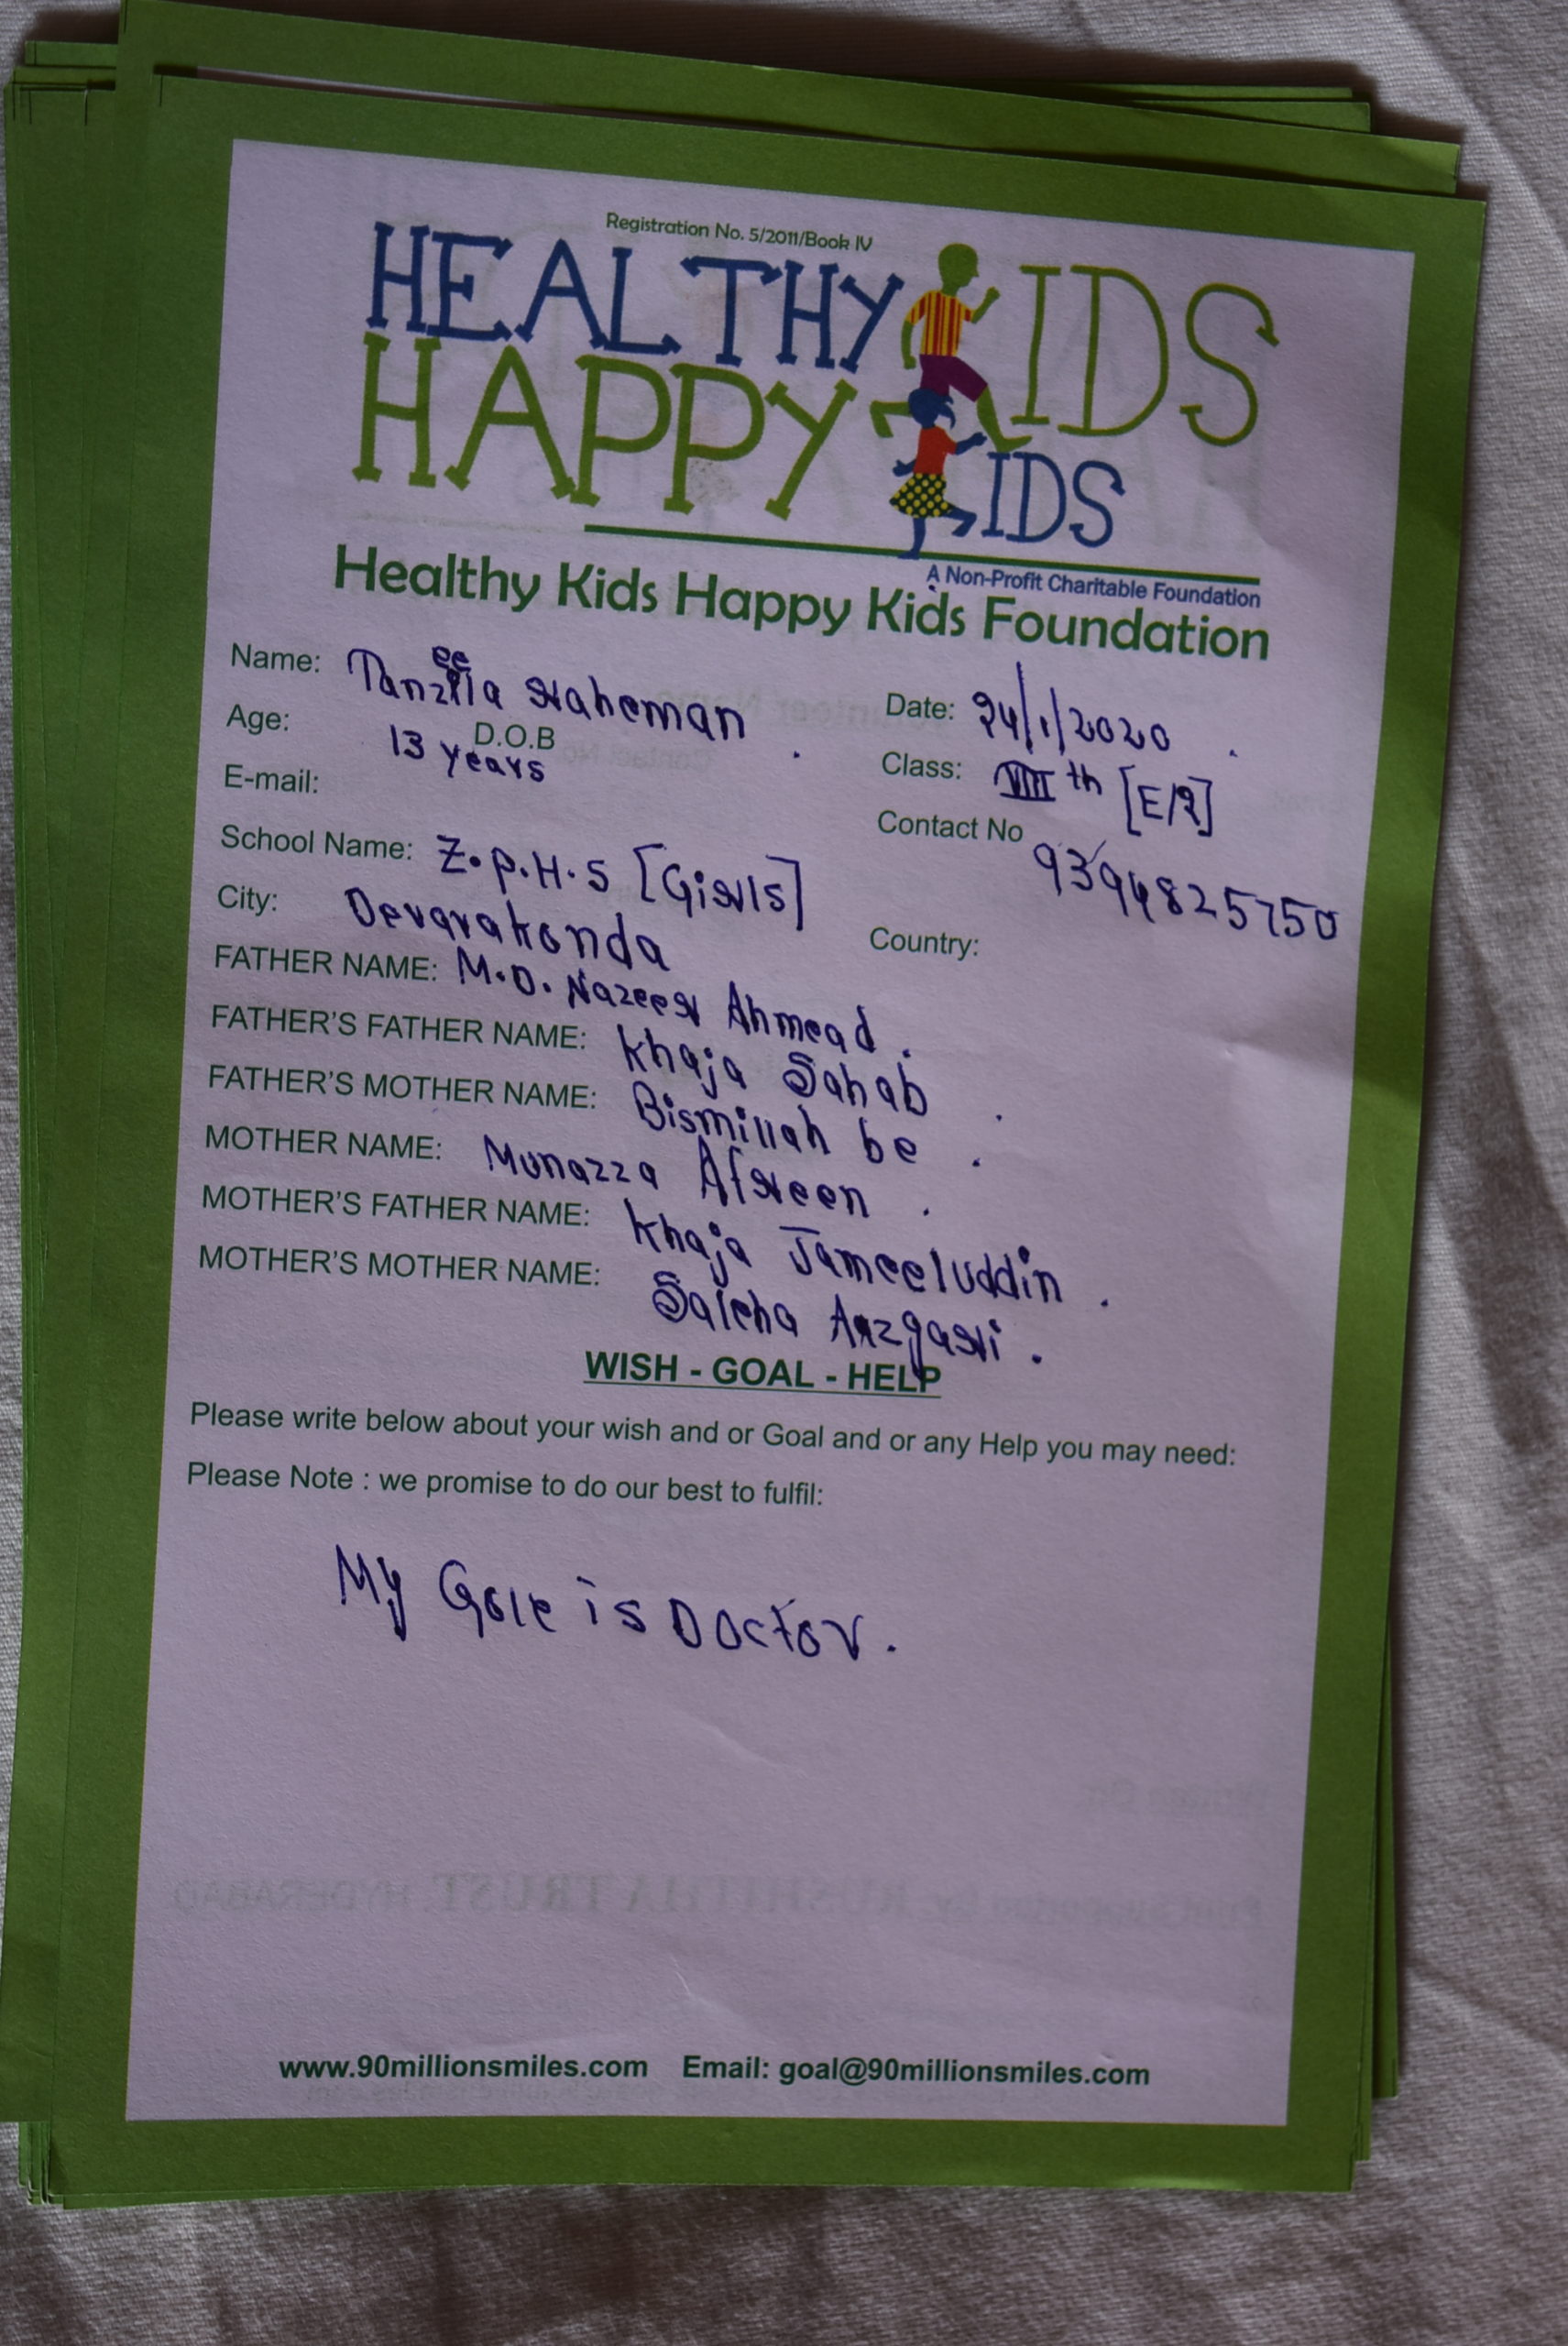 Registration No. 5/2011/Book IV
HEALTHY KIDS
HAPPY KIDS
A Non-Profit Charitable Foundation
Healthy Kids Happy Kids Foundation
Name: Tanzeela Raheman Date: 24/1/2020
Age: 13 years D.O.B Class: VIII th [E/
E-mail: Contact No 9394825750
School Name: Z.P.H.S [Girls]
City: Devarakonda Country:
FATHER NAME: M.D. Nazeer Ahmead.
FATHER'S FATHER NAME: Khaja Sahab.
FATHER'S MOTHER NAME: Bismillah be.
MOTHER NAME: Munazza Afreen.
MOTHER'S FATHER NAME: Khaja Jameeluddin.
MOTHER'S MOTHER NAME: Saleha
WISH - GOAL - HELP
Please write below about your wish and or Goal and or any Help you may need:
Please Note : we promise to do our best to fulfil:
My Gole is Doctor.
www.90millionsmiles.com Email: goal@90millionsmiles.com